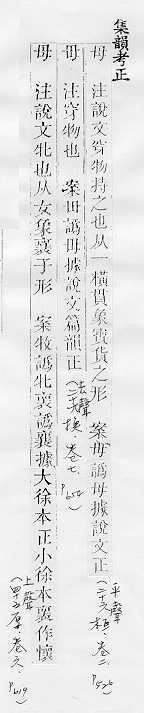 集韻考正
毌 注說文穿物持之也从一橫貫象寳貨之形 案毋譌毌據說文正
平聲
(二十六桓、卷二、
毌 注穿物也 案毌譌毋據說文篇韻正
(去聲
換、卷七、
母 注說文牝也从女象褱子形 案牧譌牝裏譌褱據大徐本正小徐本褱作懷
上聲
(四十五厚、卷六、
P619)